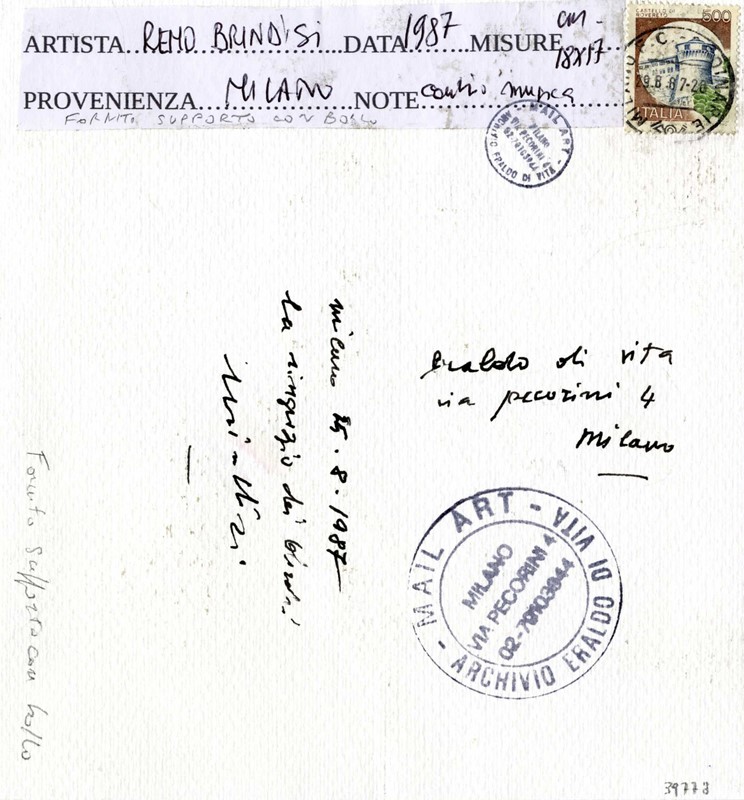 ARTISTA...REMO BRINDISI...DATA 1987...MISURE cm - 18x17
PROVENIENZA...MILANO...NOTE
FORNITO SUPPORTO CON BOLLO
CASTELLO DI ROVERETO 500
ITALIA
MAIL ART - ARCHIVIO ERALDO DI VITA
MILANO
VIA PECORINI 4
Eraldo di vita
via pecorini 4
Milano
milano 25 . 8 . 1987
la ringrazio dei
Fornito supporto con bollo
- MAIL ART - ARCHIVIO ERALDO DI VITA
MILANO
VIA PECORINI 4
39778